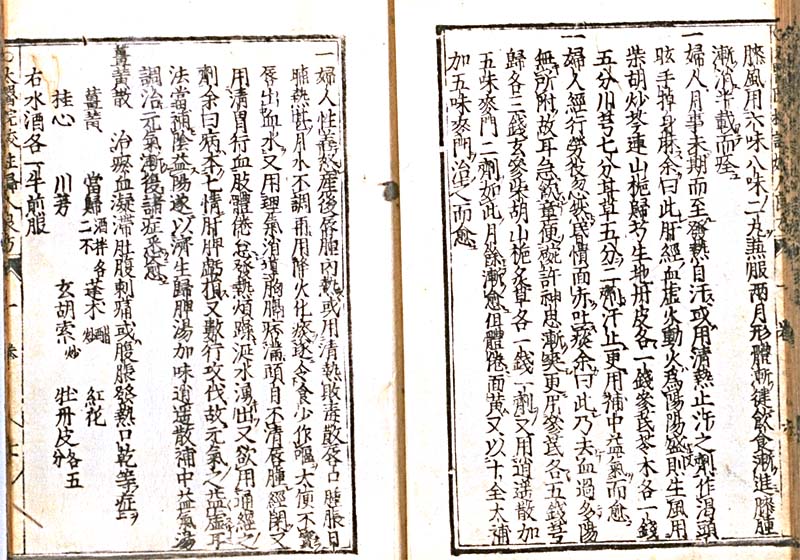 膝風用六味八味二丸兼服兩月形體漸健飮食漸進膝腫
漸消半載而痊
一婦人月事未期而至發熱自汗或用清熱止汗之劑作渴頭
眩手掉身麻余曰此肝經血虛火動火爲陽陽盛則生風用
柴胡炒芩連山梔歸芍生地丹皮各一錢參芪苓朮各一錢
五分川芎七分甘草五分二劑汗止更用補中益氣而愈
一婦人經行勞役忽然昏憒而赤吐痰余曰此乃去血過多陽
無所附故耳急飲童便
神思漸爽更用參芪各五錢芎
歸各三錢玄參柴胡山梔炙草各一錢一劑又用逍遥散加
五味麥門二劑如此月餘漸愈但體倦面黃又以十全大補
加五味麥門治之而愈
一婦人性善怒產後唇腫內熱或用清熱敗毒散唇口腫脹日
晡熱甚月水不調再用降火化痰遂令食少作嘔大便不實
唇出血水又用理氣消導胸膈痞滿頭目不清唇腫經閉又
用清胃行血肢體倦怠發熱煩躁涎水湧出又欲用通經之
劑余曰病本七情肝脾虧損又數行攻伐故元氣益虛耳
法當補陰益陽遂以濟生歸脾湯加味逍遥散補中益氣湯
調治元氣漸復諸症悉愈
薑黃散 治瘀血凝滯肚腹刺痛或腹脹發熱口乾等症
薑黃 當歸酒拌各二
蓬朮醋炒 紅花
桂心 川芎 玄胡索炒 牡丹皮各五
右水酒各一半煎服